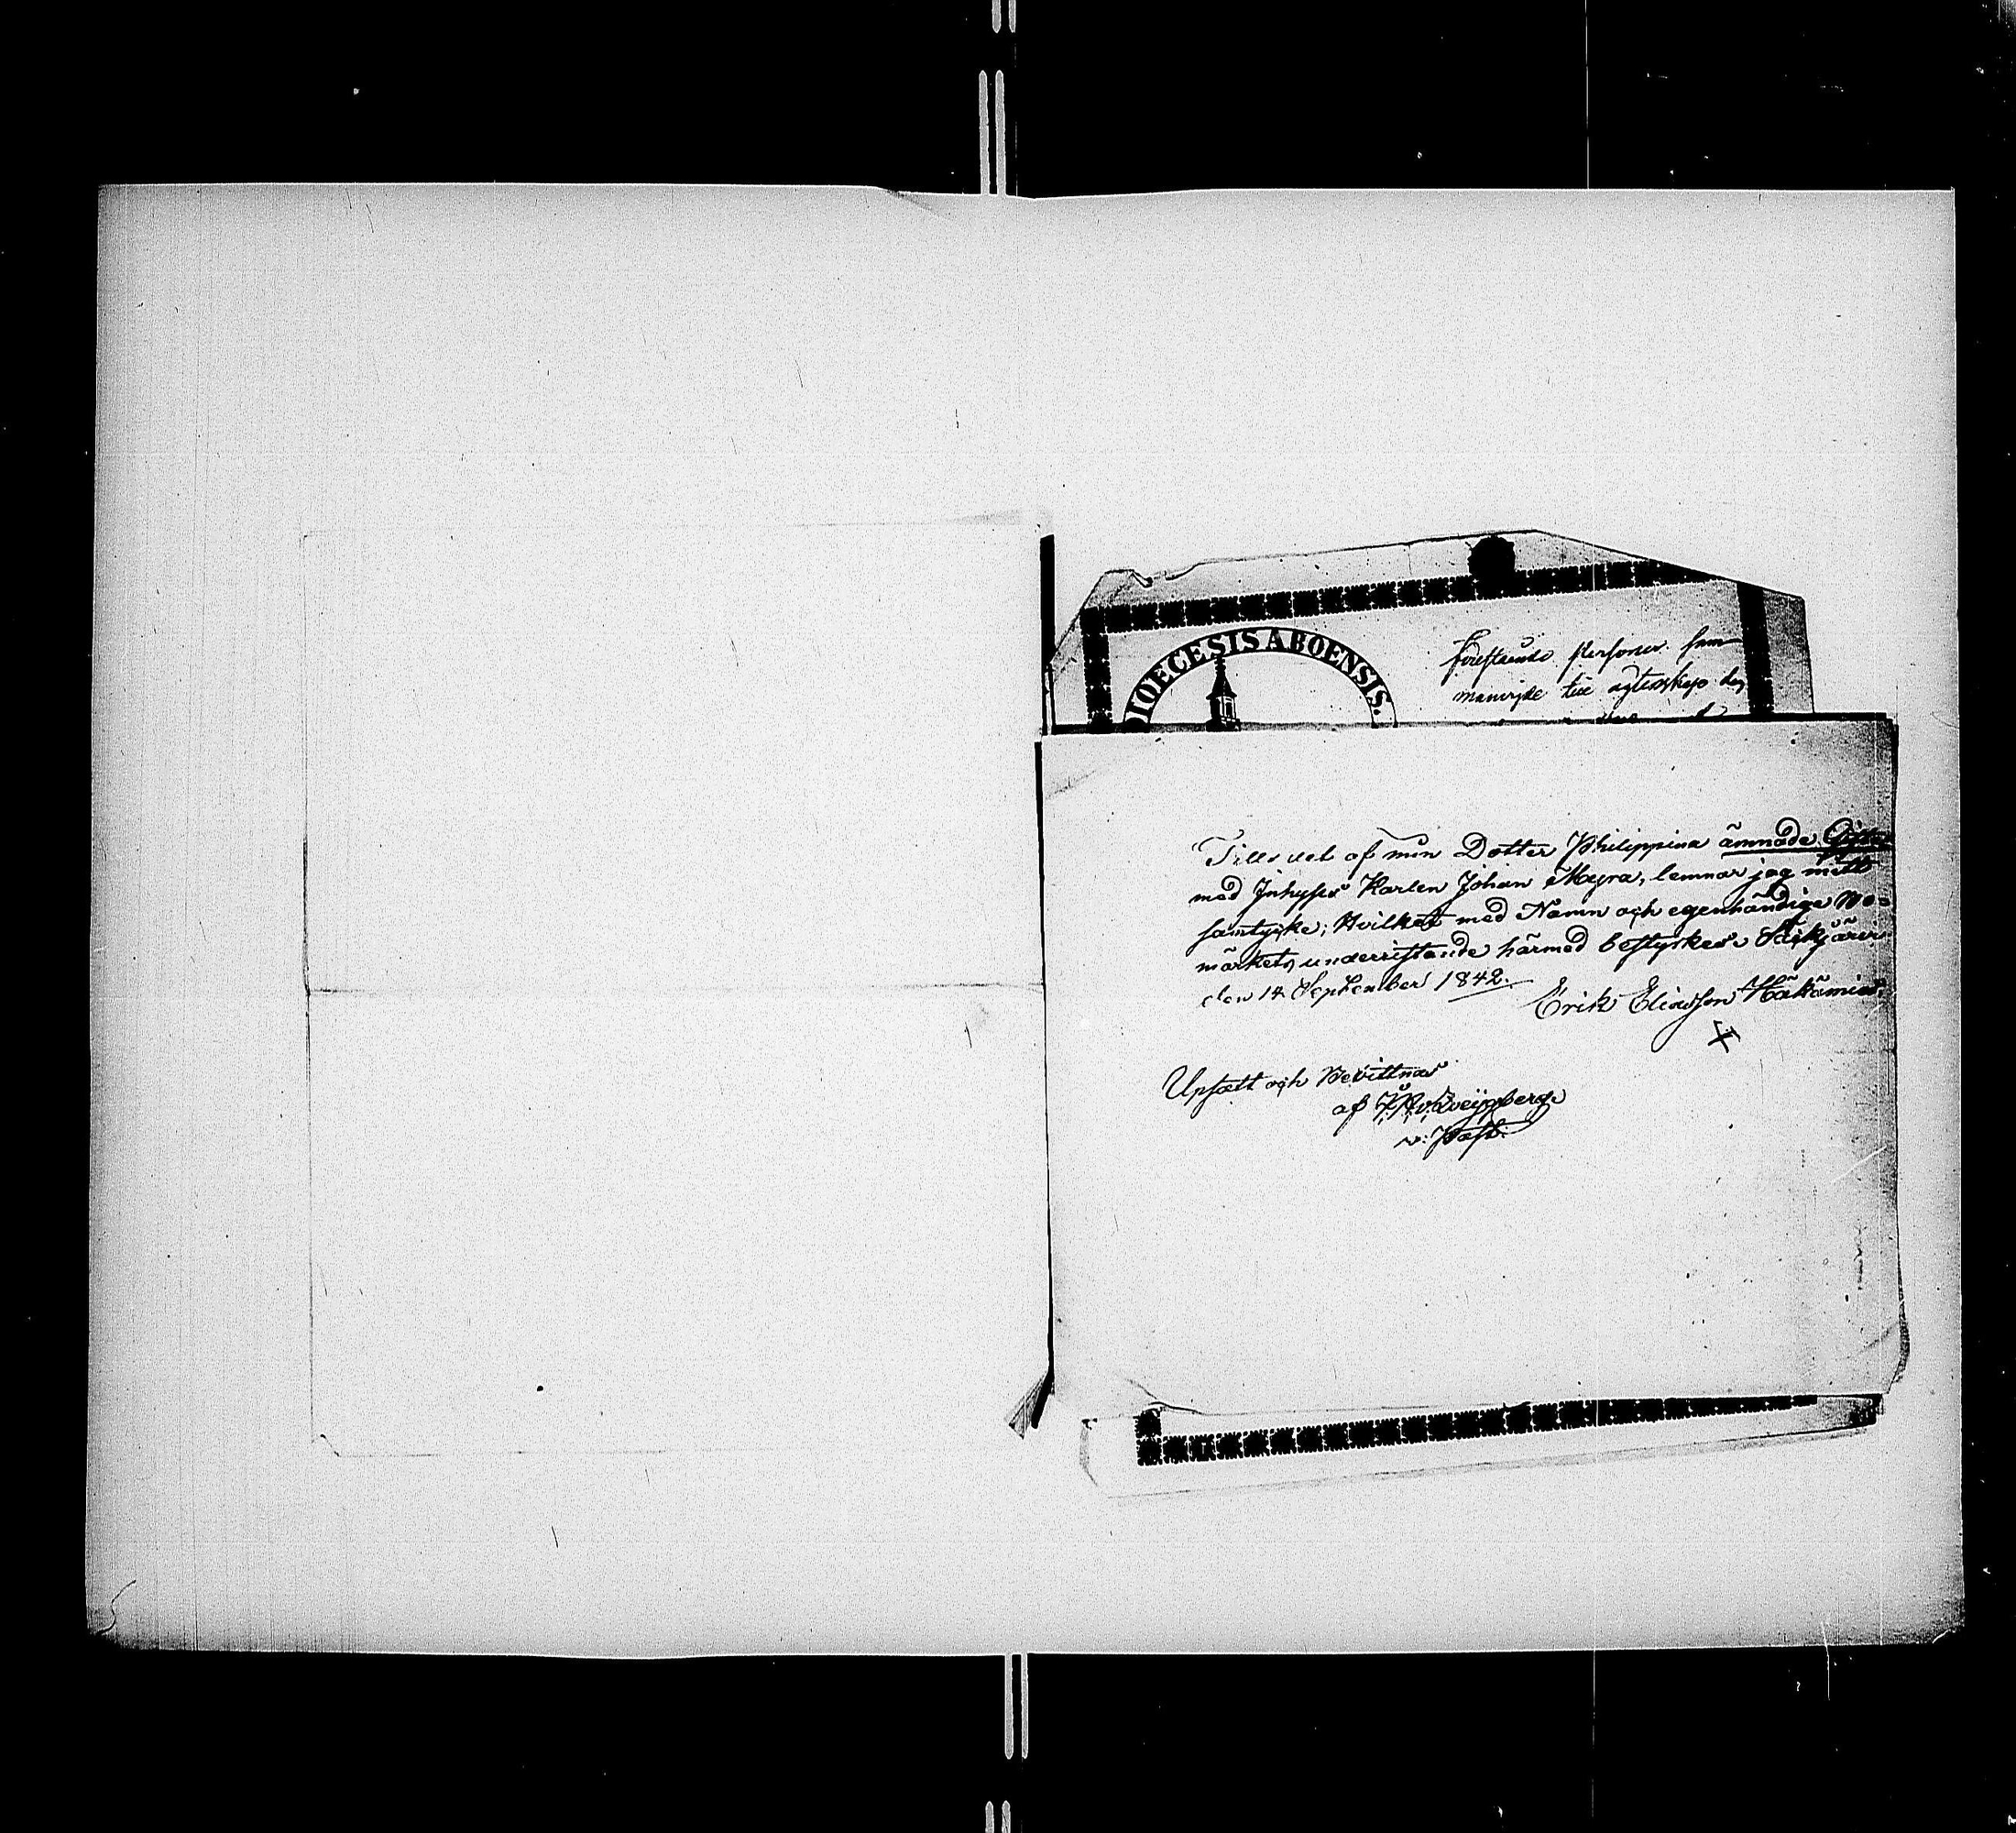 DIOECESIS ABOENSIS.
förestånde personer sam
manvigde till ägtenskap den
Till det af min Dotter Philippina ämnade Gifte
med Inhyses Karlen Johan Myra, lemnar jag mitt
samtycke; Hvilket med Namn och egenhändige Bo=
märkets underristande härmed bestyrkes. Säkjärvi
den 14 September 1842.
Erik Eliasson Häkämies.
X
Upsatt och Bevittnas
af